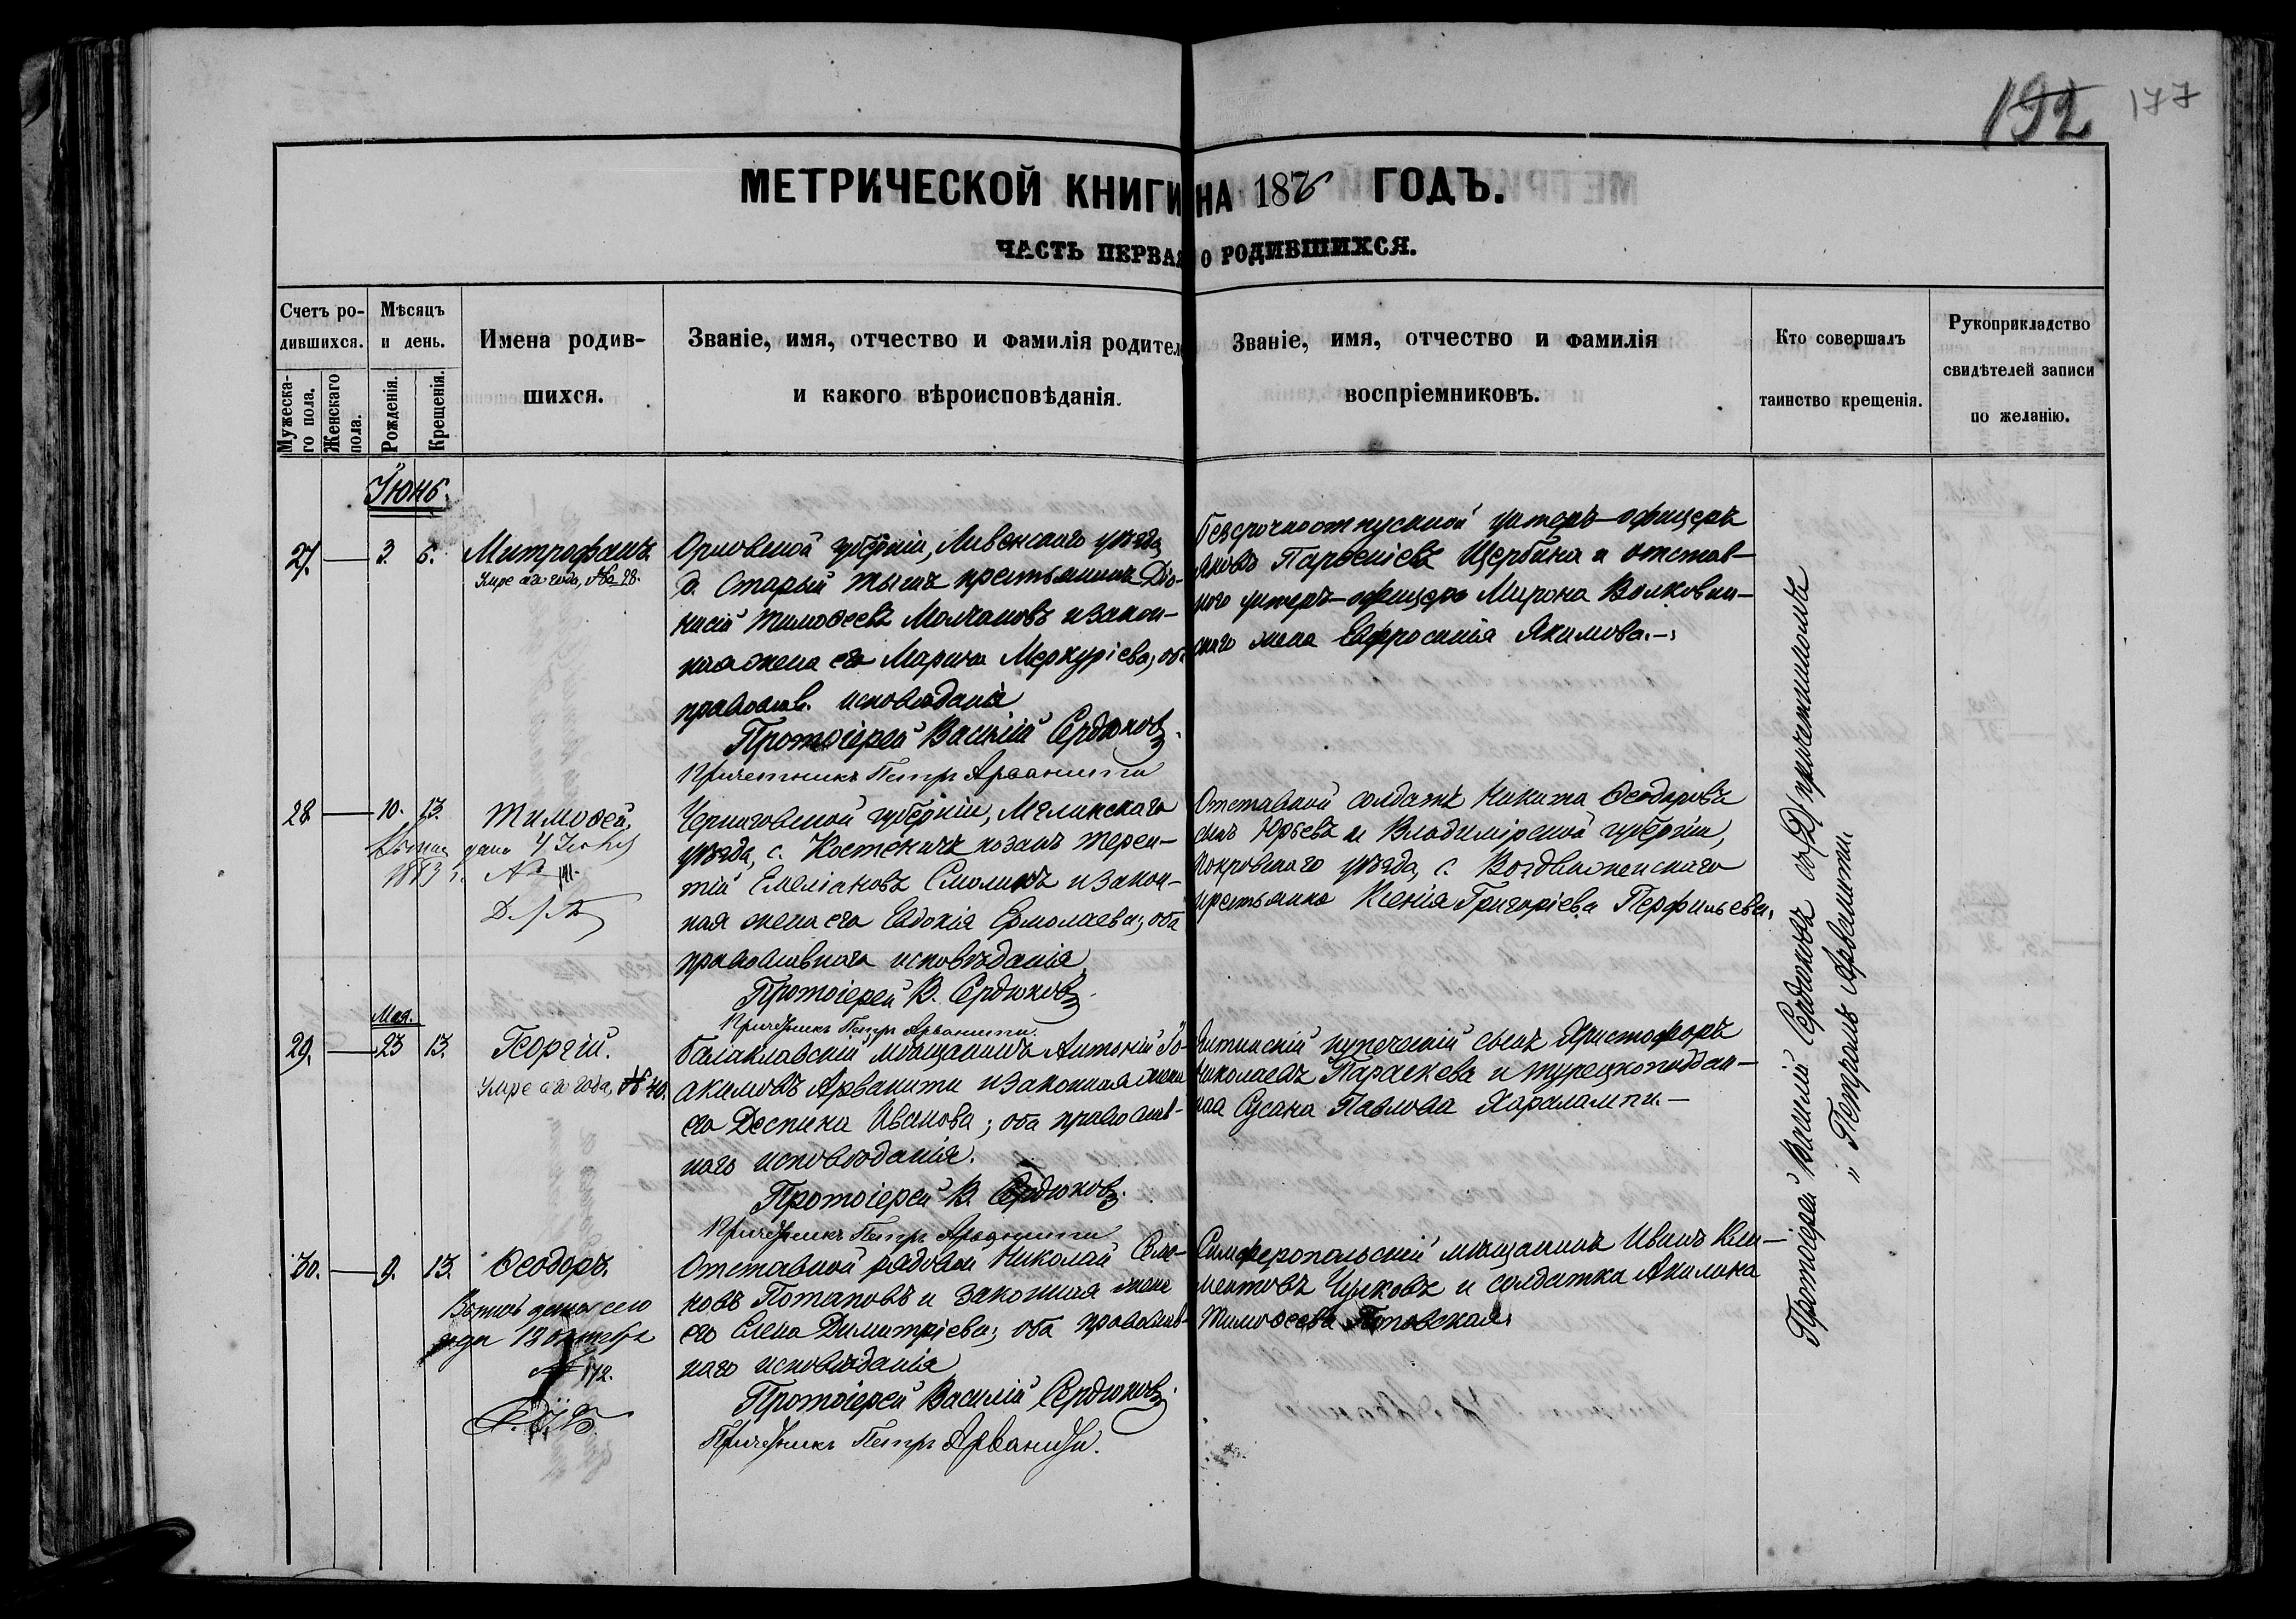 192 177
МЕТРИЧЕСКОЙ КНИГИ НА 1876 ГОДЪ.
ЧАСТЬ ПЕРВАЯ О РОДИВШИХСЯ.
Счетъ ро-
дившихся.
Мужеска-
го пола.
Женскаго
пола.
Мѣсяцъ
и день.
Рожденія.
Крещенія.
Имена родив-
шихся.
Званіе, имя, отчество и фамилія родител
и какого вѣроисповѣданія.
Званіе, имя, отчество и фамилія
воспріемниковъ.
Кто совершалъ
таинство крещенія.
Рукоприкладство
свидѣтелей записи
по желанію.
Іюнь.
27. — 3. 6. Митрофанъ.
Умре сего года, № 28.
Орловской губерніи, Ливенскаго уѣзда,
д. Старый крестьянинъ Діо-
нисій Тимоѳеевъ Молчановъ и закон-
ная жена его Марина Меркуріева; оба
православ. исповѣданія
Протоіерей Василій Сердюковъ.
Причетникъ Петръ Арванити
Безсрочноотпускной унтеръ-офицеръ
Яковъ Парѳеніевъ Щербина и отстав-
ного унтеръ-офицера Мирона Волковин-
скаго жена Евфросинія Якимова.
28 — 10. 13. Тимоѳей.
дана 4 Іюня
1883 г. № 141.
Черниговской губерніи, Мглинскаго
уѣзда, с. Костеничъ козакъ Терен-
тій Емеліановъ и закон-
ная жена его Евдокія Ермолаева; оба
православнаго исповѣданія
Протоіерей В. Сердюковъ.
Причетникъ Петръ Арванити.
Отставной солдатъ Никита Ѳеодоровъ
сынъ Юрьевъ и Владимірской губерніи,
Покровскаго уѣзда, с. Воздвиженскаго
крестьянка Ксенія Григоріева Перфильева.
Мая.
29. — 23 13. Георгій.
Умре сего года, № 40.
Балаклавскій мѣщанинъ Антоній Іо-
акимовъ Арванити и законная жена
его Деспина Иванова; оба православ-
наго исповѣданія.
Протоіерей В. Сердюковъ.
Причетникъ Петръ Арванити
купеческій сынъ Христофоръ
Николаевъ Параскева и турецкоподдан-
ная Сусана Павлова Харалампи.—
30. — 9. 13. Ѳеодоръ.
дана сего
года 13 октября
№ 172.
Отставной рядовой Николай Семе-
новъ Потаповъ и законная жена
его Елена Димитріева; оба православ-
наго исповѣданія
Протоіерей Василій Сердюковъ.
Причетникъ Петръ Арванити.
Симферопольскій мѣщанинъ Иванъ Кли-
ментовъ Чулковъ и солдатка Акилина
Тимоѳеева
Протоіерей Василій Сердюковъ съ причетникомъ
„ Петромъ Арванити.